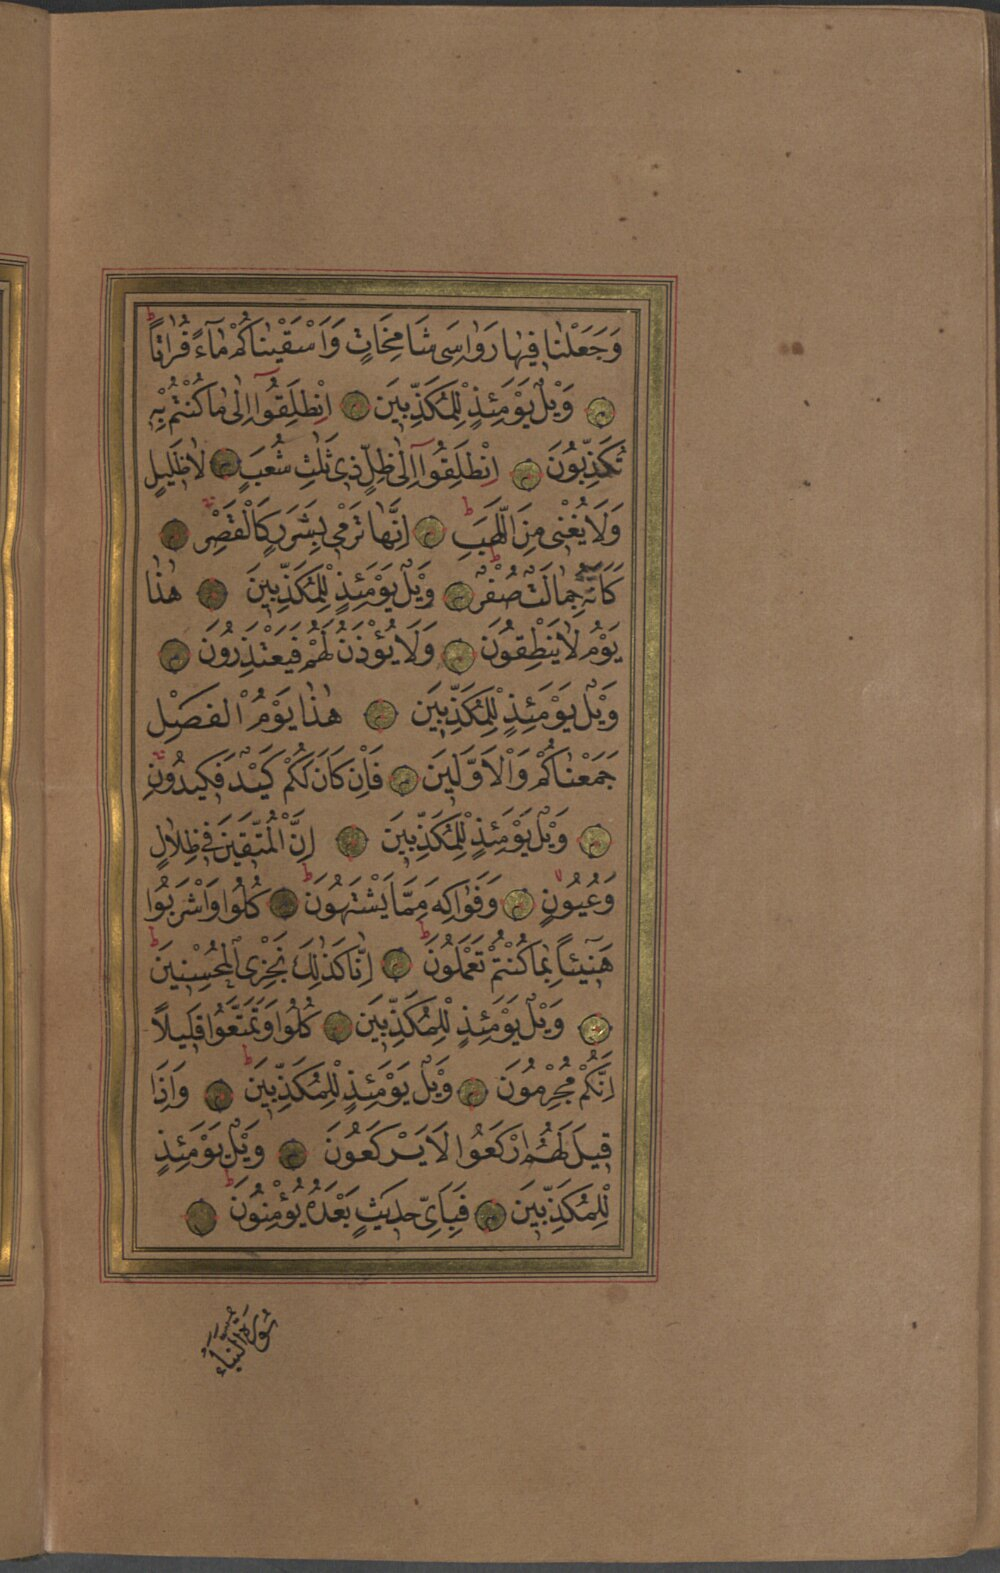 وَجَعَلْنَا فِيهَا رَوَاسِىَ شَامِخَاتٍ وَاَسْقَيْنَاكُمْ مَٓاءً فُرَاتًا
وَيْلٌ يَوْمَئِذٍ لِلْمُكَذِّبِينَ اِنْطَلِقُٓوا اِلٰى مَا كُنْتُمْ بِهِ
تُكَذِّبُونَ اِنْطَلِقُٓوا اِلٰى ظِلٍّ ذِى ثَلٰثِ شُعَبٍ لَا ظَلِيلٍ
وَلَا يُغْنِى مِنَ اللَّهَبِ اِنَّهَا تَرْمِى بِشَرَرٍ كَالْقَصْرِ
كَاَنَّهُ جِمَالَتٌ صُفْرٌ وَيْلٌ يَوْمَئِذٍ لِلْمُكَذِّبِينَ هٰذَا
يَوْمُ لَا يَنْطِقُونَ وَلَا يُؤْذَنُ لَهُمْ فَيَعْتَذِرُونَ
وَيْلٌ يَوْمَئِذٍ لِلْمُكَذِّبِينَ هٰذَا يَوْمُ الْفَصْلِ
جَمَعْنَاكُمْ وَالْاَوَّلِينَ فَاِنْ كَانَ لَكُمْ كَيْدٌ فَكِيدُونِ
وَيْلٌ يَوْمَئِذٍ لِلْمُكَذِّبِينَ اِنَّ الْمُتَّقِينَ فِى ظِلَالٍ
وَعُيُونٍ وَفَوَاكِهَ مِمَّا يَشْتَهُونَ كُلُوا وَاشْرَبُوا
هَنِٓيئًا بِمَا كُنْتُمْ تَعْمَلُونَ اِنَّا كَذٰلِكَ نَجْزِى الْمُحْسِنِينَ
وَيْلٌ يَوْمَئِذٍ لِلْمُكَذِّبِينَ كُلُوا وَتَمَتَّعُوا قَلِيلًا
اِنَّكُمْ مُجْرِمُونَ وَيْلٌ يَوْمَئِذٍ لِلْمُكَذِّبِينَ وَاِذَا
قِيلَ لَهُمُ ارْكَعُوا لَا يَرْكَعُونَ وَيْلٌ يَوْمَئِذٍ
لِلْمُكَذِّبِينَ فَبِاَىِّ حَدِيثٍ بَعْدَهُ يُؤْمِنُونَ
سُورَةُ النَّبَاءِ